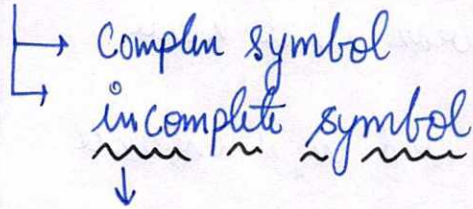 complex symbol
incomplete symbol